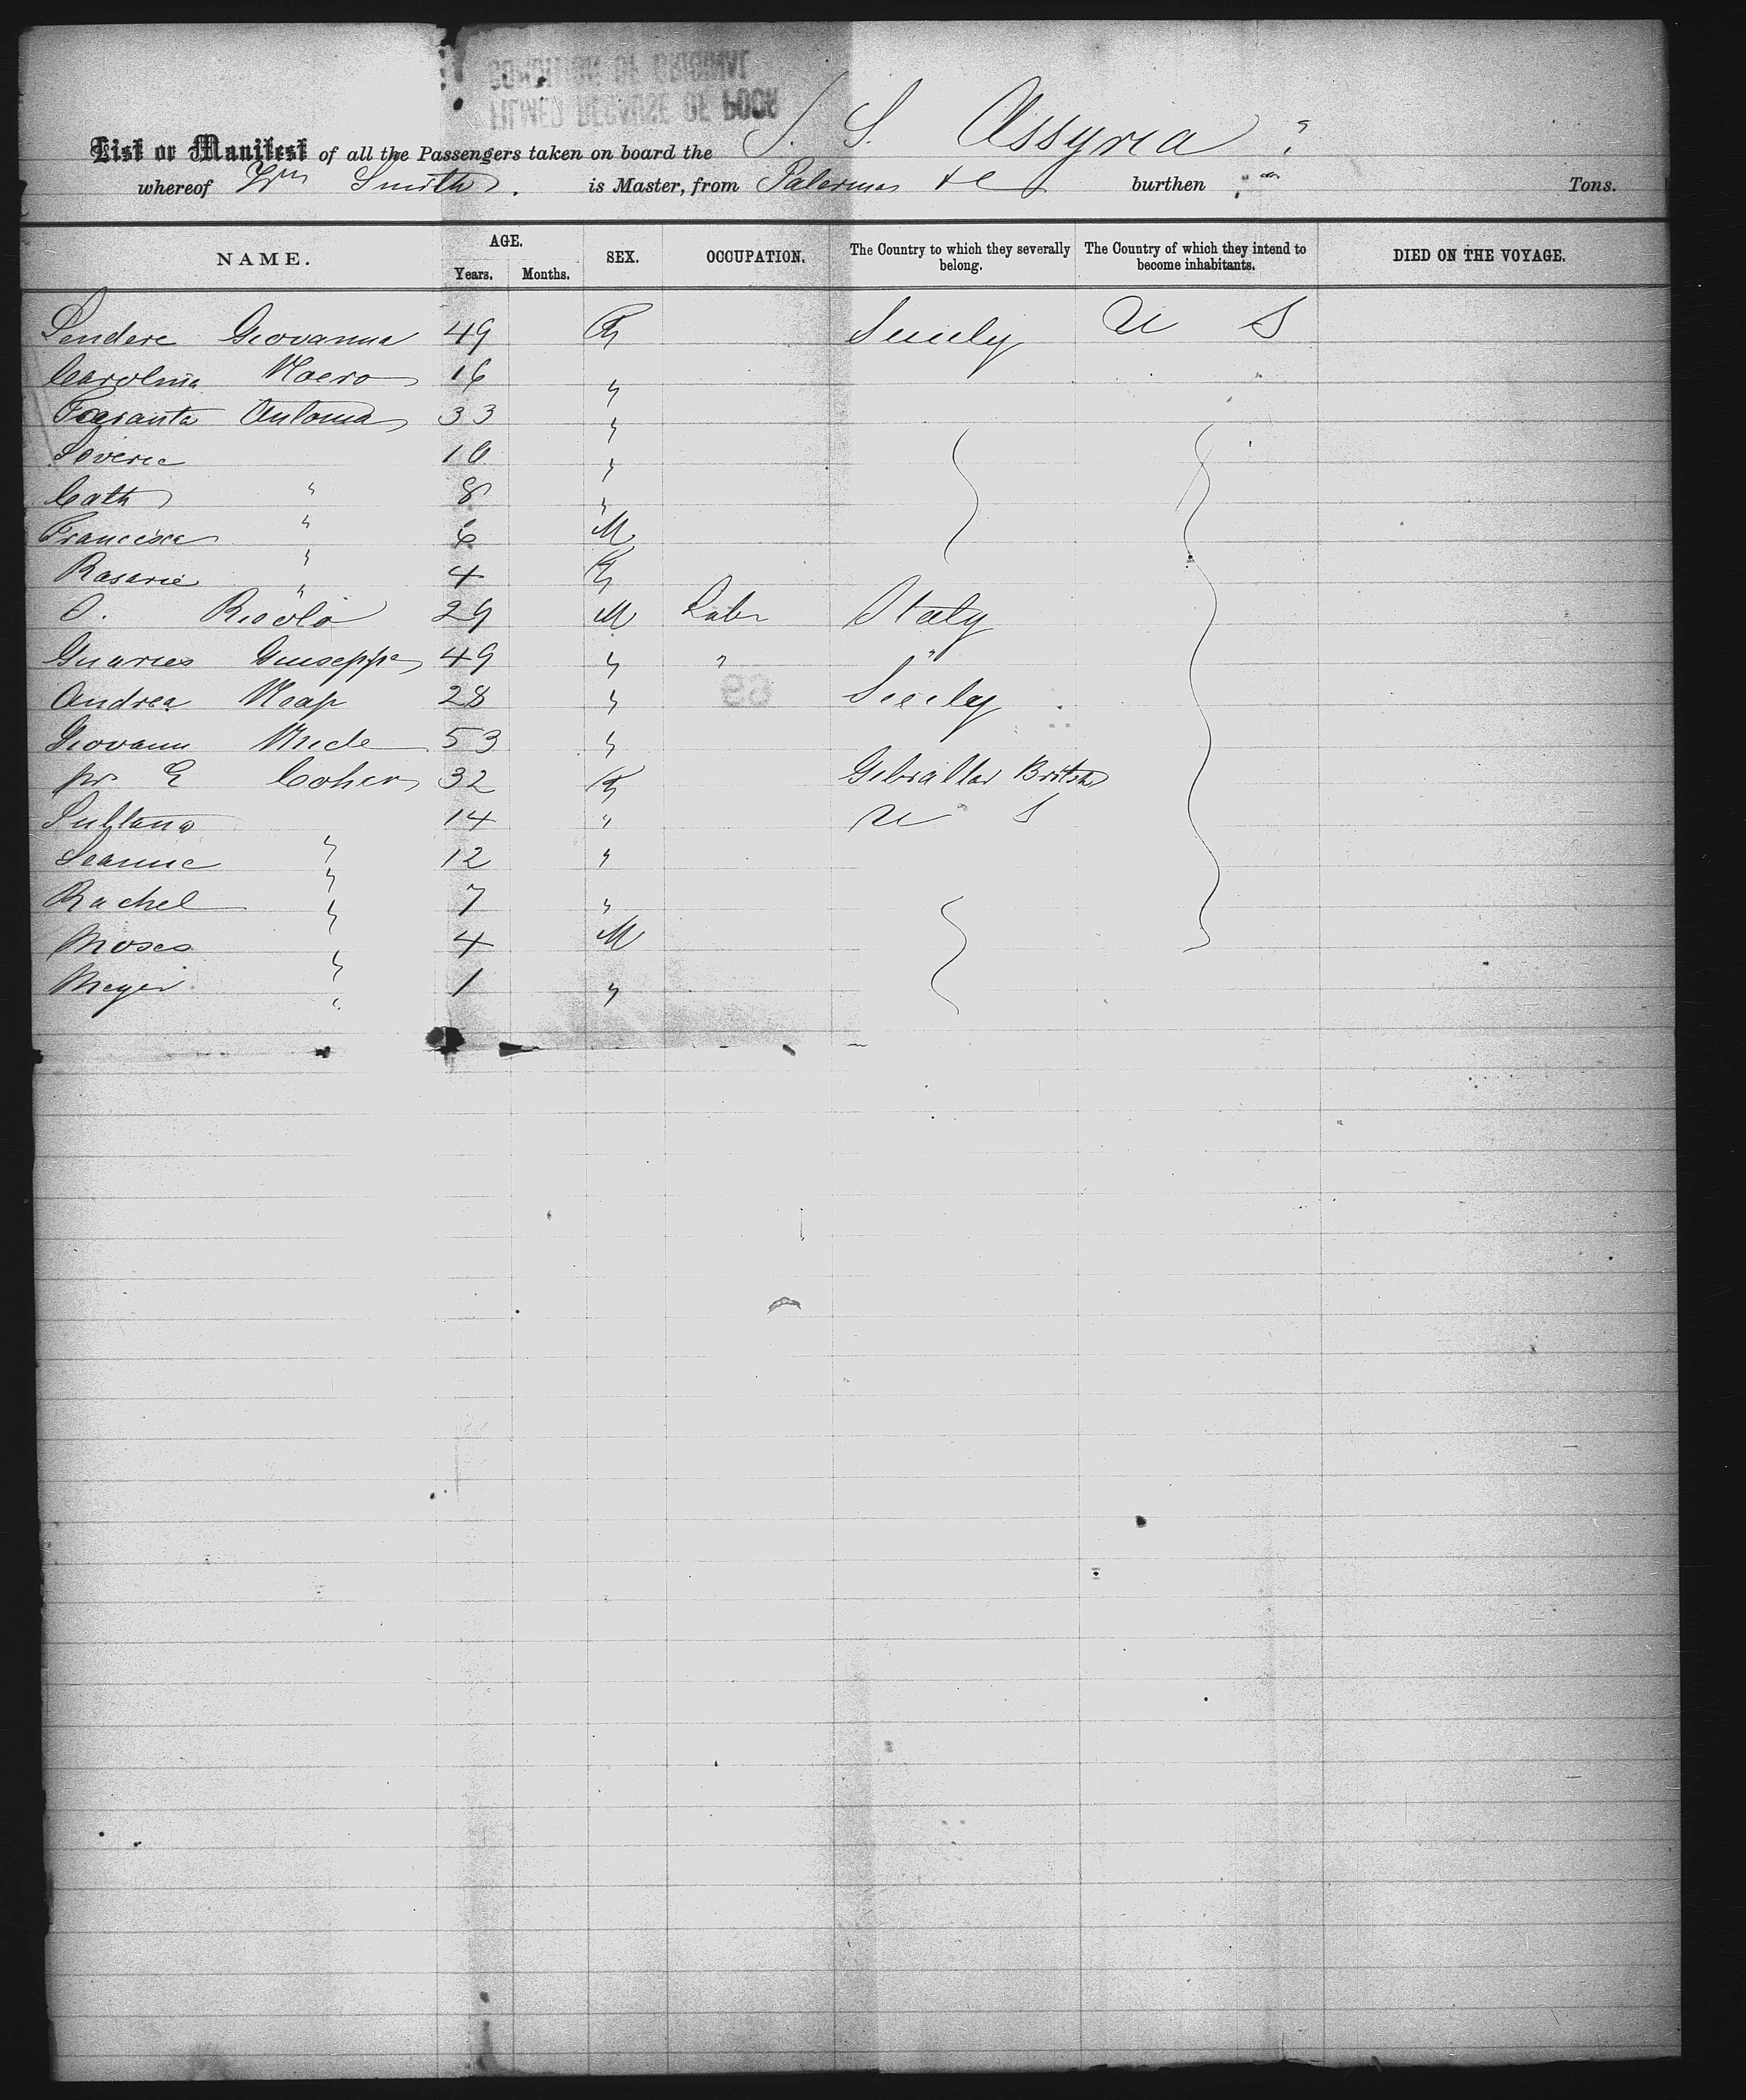 List or Manifest of all the Passengers taken on board the S. S. Assyria
whereof Wm Smith. is Master, from Palermo &c burthen " " Tons.
NAME. AGE. Years. Months. SEX. OCCUPATION. The Country to which they severally belong. The Country of which they intend to become inhabitants. DIED ON THE VOYAGE.
Sendere Giovanna 49 F Sicily U S
Carolina 16 "
Taranta Antonia 33 "
Soverie " 10 "
Cath " 8 "
Francisca " 6 M
Rosarie " 4 F
O. 29 M Labr Italy
Guaries Giuseppe 49 " " "
Andrea 28 " Sicily
Giovanni 53 "
Mr. E Cohen 32 F Gibraltar British
Sultana " 14 " U S
Jeanne " 12 "
Rachel " 7 "
Moses " 4 M
Meyer " 1 "